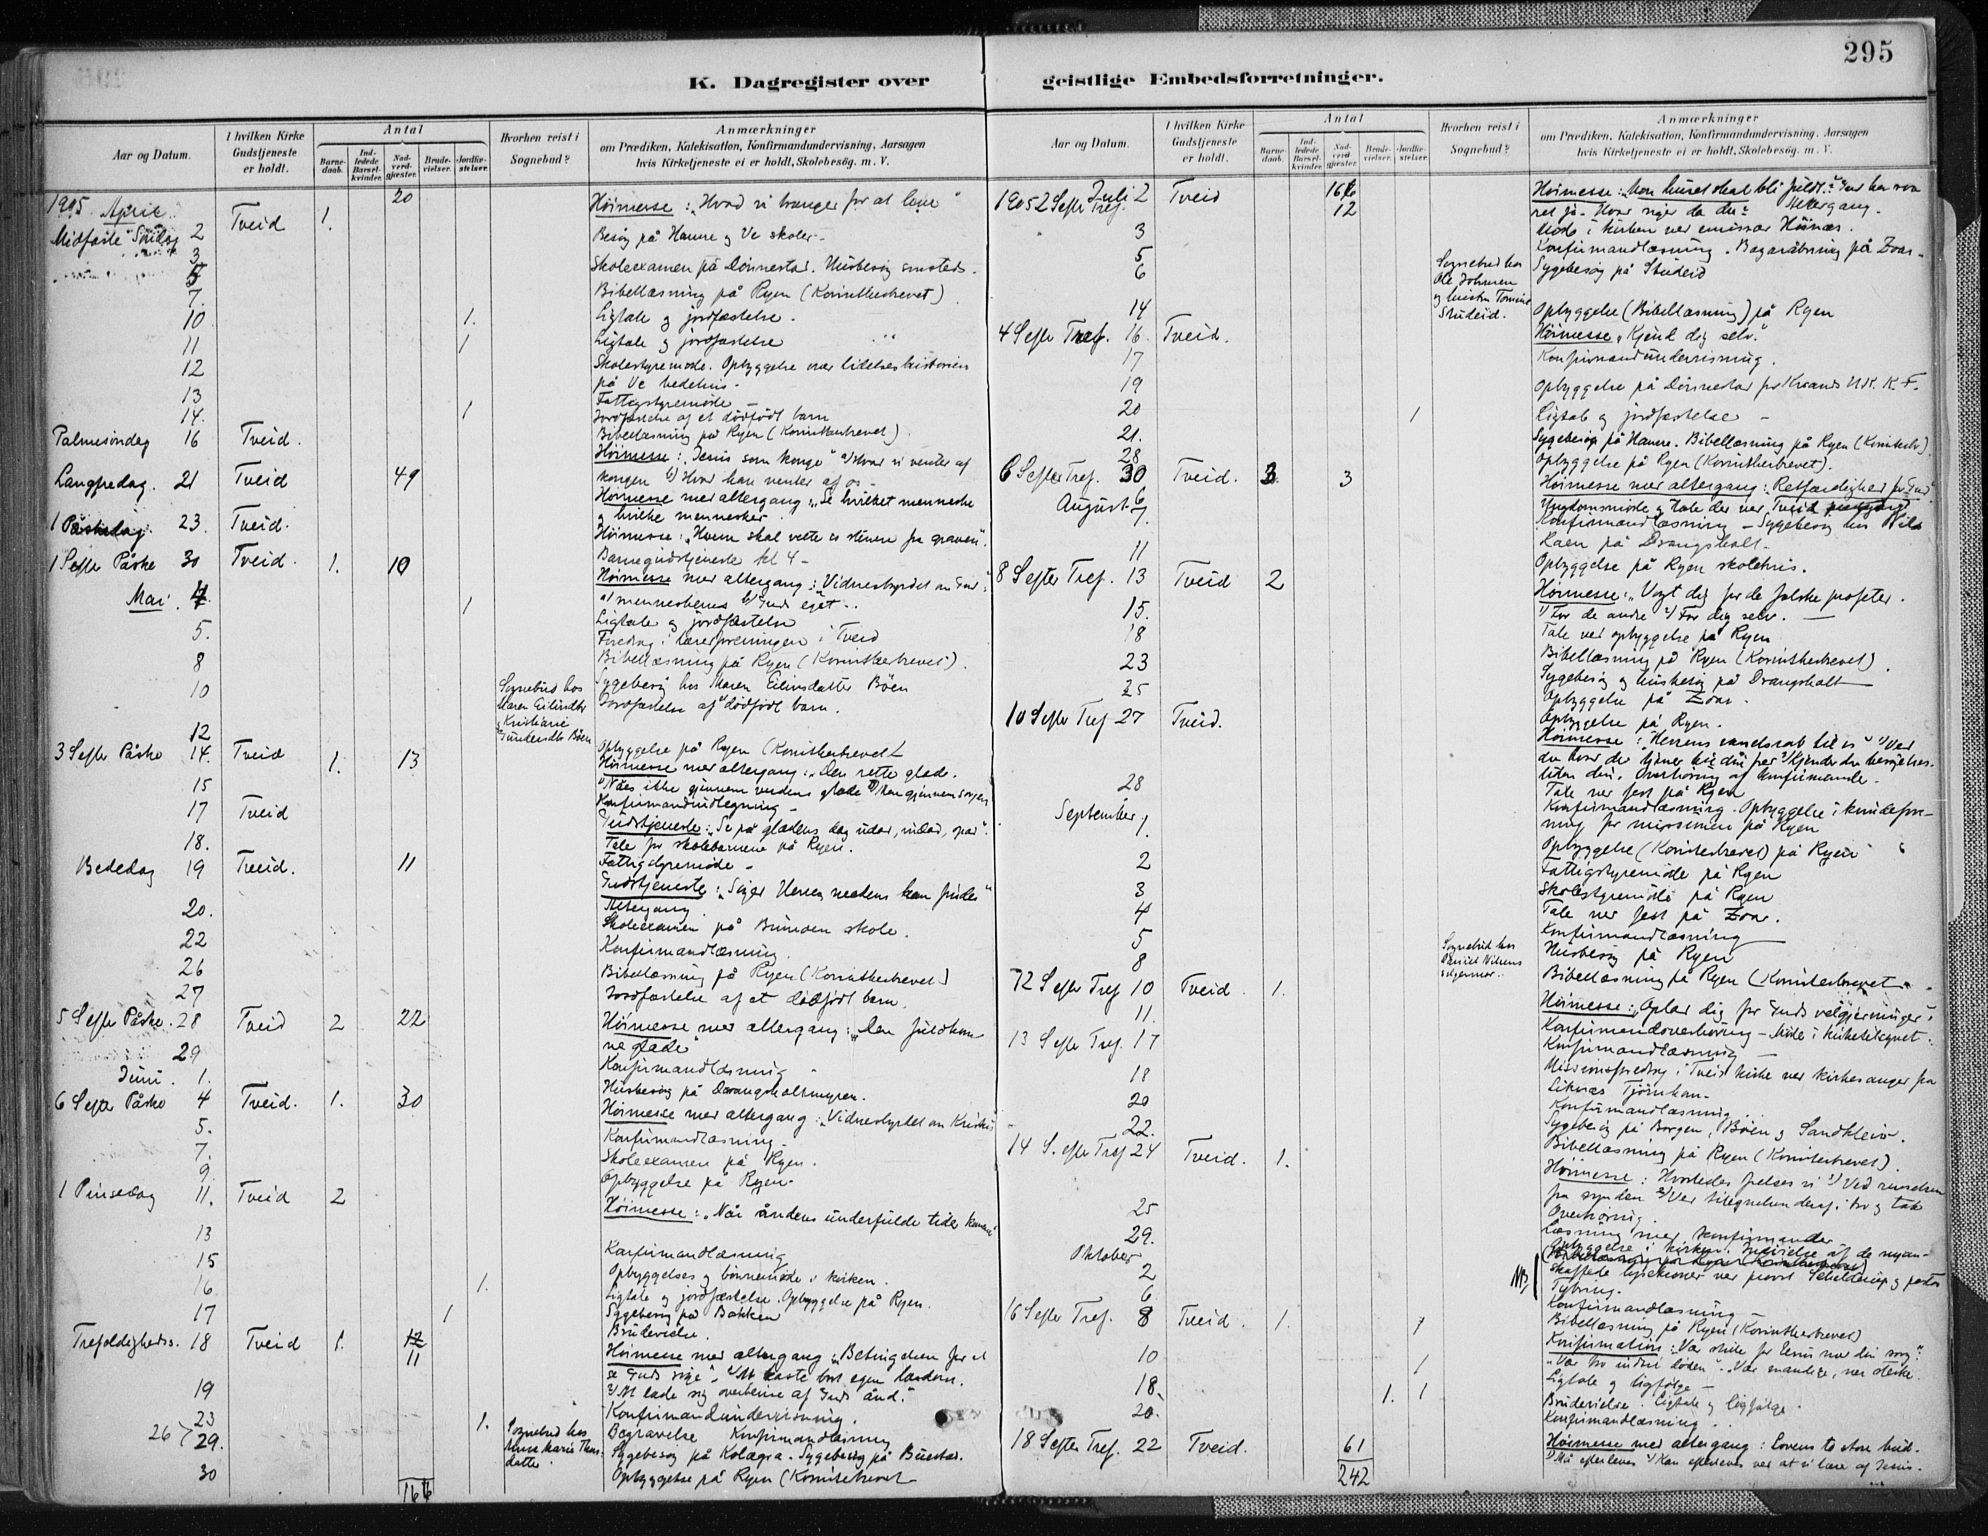 295
K. Dagregister over geistlige Embedsforretninger.
Aar og Datum.
I hvilken Kirke Gudstjeneste er holdt.
Antal
Barnedaab.
Indledede Barselkvinder.
Nadverdgjæster.
Brudevielser.
Jordfæstelser.
Hvorhen reist i Sognebud?
Anmærkninger
om Prædiken, Katekisation, Konfirmandundervisning, Aarsagen
hvis Kirketjeneste ei er holdt, Skolebesøg. m. V.
1905 April
20
Høimesse: „Hvad vi trænger for at leve"
Midfaste Søndag 2 Tveid 1.
Besøg på Hamre og Ve skoler.
3
5 Skoleexamen på Dønnestad. Husbesøg smsteds.
7. Bibellæsning på Ryen (Korintherbrevet).
10 1. Ligtale og jordfæstelse.
11 1 Ligtale og jordfæstelse
12 Skolestyremøde. Opbyggelse over lidelseshistorien
på Ve bedehus.
13 Fattigstyremøde
14. 1 Jordfæstelse af et dødfødt barn
Bibellæsning på Ryen (Korintherbrevet).
Palmesøndag 16 Tveid.
Høimesse: „Jesus som konge" 1) Hvad vi venter af
kongen 2) Hvad han venter af os
Langfredag. 21 Tveid 49
Høimesse med altergang: „Se hvilket menneske
og hvilke mennesker
1 Påskedag. 23. Tveid.
Høimesse: „Hvem skal vælte os stenen fra graven".
Barnegudstjeneste kl 4
1 S efter Påske 30 Tveid. 1. 10
Høimesse med altergang: „Vidnesbyrdet om Gud":
1) menneskenes 2) Guds eget.
Mai. 4 1
Ligtale og jordfæstelse
5. Foredrag i lærerforeningen i Tveid
Bibellæsning på Ryen (Korintherbrevet).
8 Sygebesøg hos Maren Eilivsdatter Bøen
10 Jordfæstelse af dødfødt barn.
Sognebud hos
12 Opbyggelse på Ryen (Korintherbrevet)
3 S efter Påske 14. Tveid 1. 13
Høimesse med altergang: „Den rette glæde.
15 Konfirmandindtegning
17 Tveid
Gudstjeneste: „Se på glædens dag udad, indad, opad".
Tale for skolebarnene på Ryen.
18. Fattigstyremøde
Bededag 19 Tveid. 11
Gudstjeneste: „Søger Herren medens han findes"
Altergang.
20. Skoleexamen på Brunæn skole.
22 Konfirmandlæsning.
26 Bibellæsning på Ryen (Korintherbrevet)
27 Jordfæstelse af et dødfødt barn.
5 S efter Påske. 28 Tveid 2 22
Høimesse med altergang: „Den fuldkomne
glæde"
29 Konfirmandlæsning
Juni. 1. Husbesøg på Drangsholtmyren.
6 S efter Påske 4 Tveid. 1. 30
Høimesse med altergang: „Vidnesbyrdet om Kristus"
5. Konfirmandlæsning
7. Skoleexamen på Ryen.
9. Opbyggelse på Ryen.
1 Pinsedag 11. Tveid 2
Høimesse: „Når åndens underfulde tider kommer"
13 Konfirmandlæsning
15 Opbyggelses og bønnemøde i kirken.
16 1. Ligtale og jordfæstelse. Opbyggelse på Ryen.
Sygebesøg på Bakken
17 1 Brudevielse.
Trefoldigheds. 18 Tveid 1. 12
11
Høimesse med altergang: „Betingelsen for at
se Guds rige", 1) At kaste bort egen lærdom.
2) At lade sig overbevise af Guds ånd."
19 Konfirmandundervisning.
23 1. Begravelse Konfirmandlæsning
26 29. Sognebud hos
Anne Marie Thorsdatter
Sygebesøg på Kolægra. Sygebesøg på Buestad.
30 Opbyggelse på Ryen (Korintherbrevet
166
Aar og Datum.
I hvilken Kirke Gudstjeneste er holdt.
Antal
Barnedaab.
Indledede Barselkvinder.
Nadverdgjæster.
Brudevielser.
Jordfæstelser.
Hvorhen reist i Sognebud?
Anmærkninger
om Prædiken, Katekisation, Konfirmandundervisning, Aarsagen
hvis Kirketjeneste ei er holdt, Skolebesøg. m. V.
1905 2 S efter Tref. Juli 2 Tveid 166
12
Høimesse: „Mon huset skal bli fuldt?" Gud har svaret
ja. Hvad siger da du? Altergang.
Møde i kirken ved emissær Høinæs.
3 Konfirmandlæsning. Bazaråbning på Zoar.
5 Sygebesøg på Studeid
6
Sognebud hos
Ole Johnsen
og hustru
Studeid.
14 Opbyggelse (Bibellæsning) på Ryen
4 S efter Tref. 16. Tveid.
Høimesse „Kjend dig selv".
17 Konfirmandundervisning.
19 Opbyggelse på Dønnestad
20 1 Ligtale og jordfæstelse
21. Sygebesøg på Hamre. Bibellæsning på Ryen (Korintbr.)
28 Opbyggelse på Ryen (Korintherbrevet).
6 S efter Tref. 30 Tveid. 3 3
Høimesse med altergang: „Retfærdighed for Gud".
August 6 Ungdomsmøde og tale der ved Tveid
7. Konfirmandlæsning – Sygebesøg hos Nils
Haen på Drangsholt.
11 Opbyggelse på Ryen skolehus.
8 S efter Tref. 13 Tveid 2
Høimesse: „Vogt dig for de falske profeter.
1) For de andre 2) For dig selv.
15. Tale ved opbyggelse på Ryen
18 Bibellæsning på Ryen (Korintherbrevet)
23 Sygebesøg og husbesøg på Drangsholt
25 Opbyggelse på Zoar.
Opbyggelse på Ryen.
10 S efter Tref 27 Tveid.
Høimesse: „Herrens vendskab til os"
28 Tale ved fest på Ryen
September 1. Konfirmandlæsning. Opbyggelse i kvindeforening
for missionen på Ryen
Opbyggelse (Korintherbrevet) på Ryen
2 Fattigstyremøde på Ryen
3 Skolestyremøde på Ryen
4 Tale ved fest på Zoar.
5 Konfirmandlæsning
8 Husbesøg på Ryen
Sognebud hos
Daniel Nilsens
Bibellæsning på Ryen (Korintherbrevet
12 S efter Tref 10 Tveid. 1.
Høimesse: „Oplad dig for Guds velgjerninger":
11. Konfirmandoverhøring – Møde i kirketilsynet.
13 S efter Tref. 17 Konfirmandlæsning
Missionsforedrag i Tveid kirke ved kirkesanger fra
Liknæs Tjomsland
18 Konfirmandlæsning
20 Sygebesøg på Borgen, Bøen og Sandkleiv.
22. Bibellæsning på Ryen (Korintherbrevet).
14 S. efter Tref 24 Tveid. 1.
Høimesse: Hvorledes frelses vi 1) Ved renselsen
fra synden 2) Ved tilegnelsen deraf i tro og tak
25 Overhøring.
29. Læsning med konfirmander
Oktober 2 Opbyggelse i kirken. Indvielse af de nyanskaffede
lysekroner ved provst Schelderup og pastor
Tybring.
NB
6 Konfirmandlæsning
Bibellæsning på Ryen (Korintherbrevet)
16 S efter Tref. 8 Tveid. 1. 1
Konfirmation: „Vær stille for Jesus med din sorg".
„Vær tro indtil døden". „Vær mandige, vær stærke.
10 1 Ligtale og ligfølge
18. 1. 1 Brudevielse. Ligtale og ligfølge.
20. Konfirmandlæsning.
18 S efter Tref. 22 Tveid. 61
Høimesse med altergang: Lovens to store bud.
1) Må efterleves 2) Kan efterleves ved at vi lære af Jesus.
242